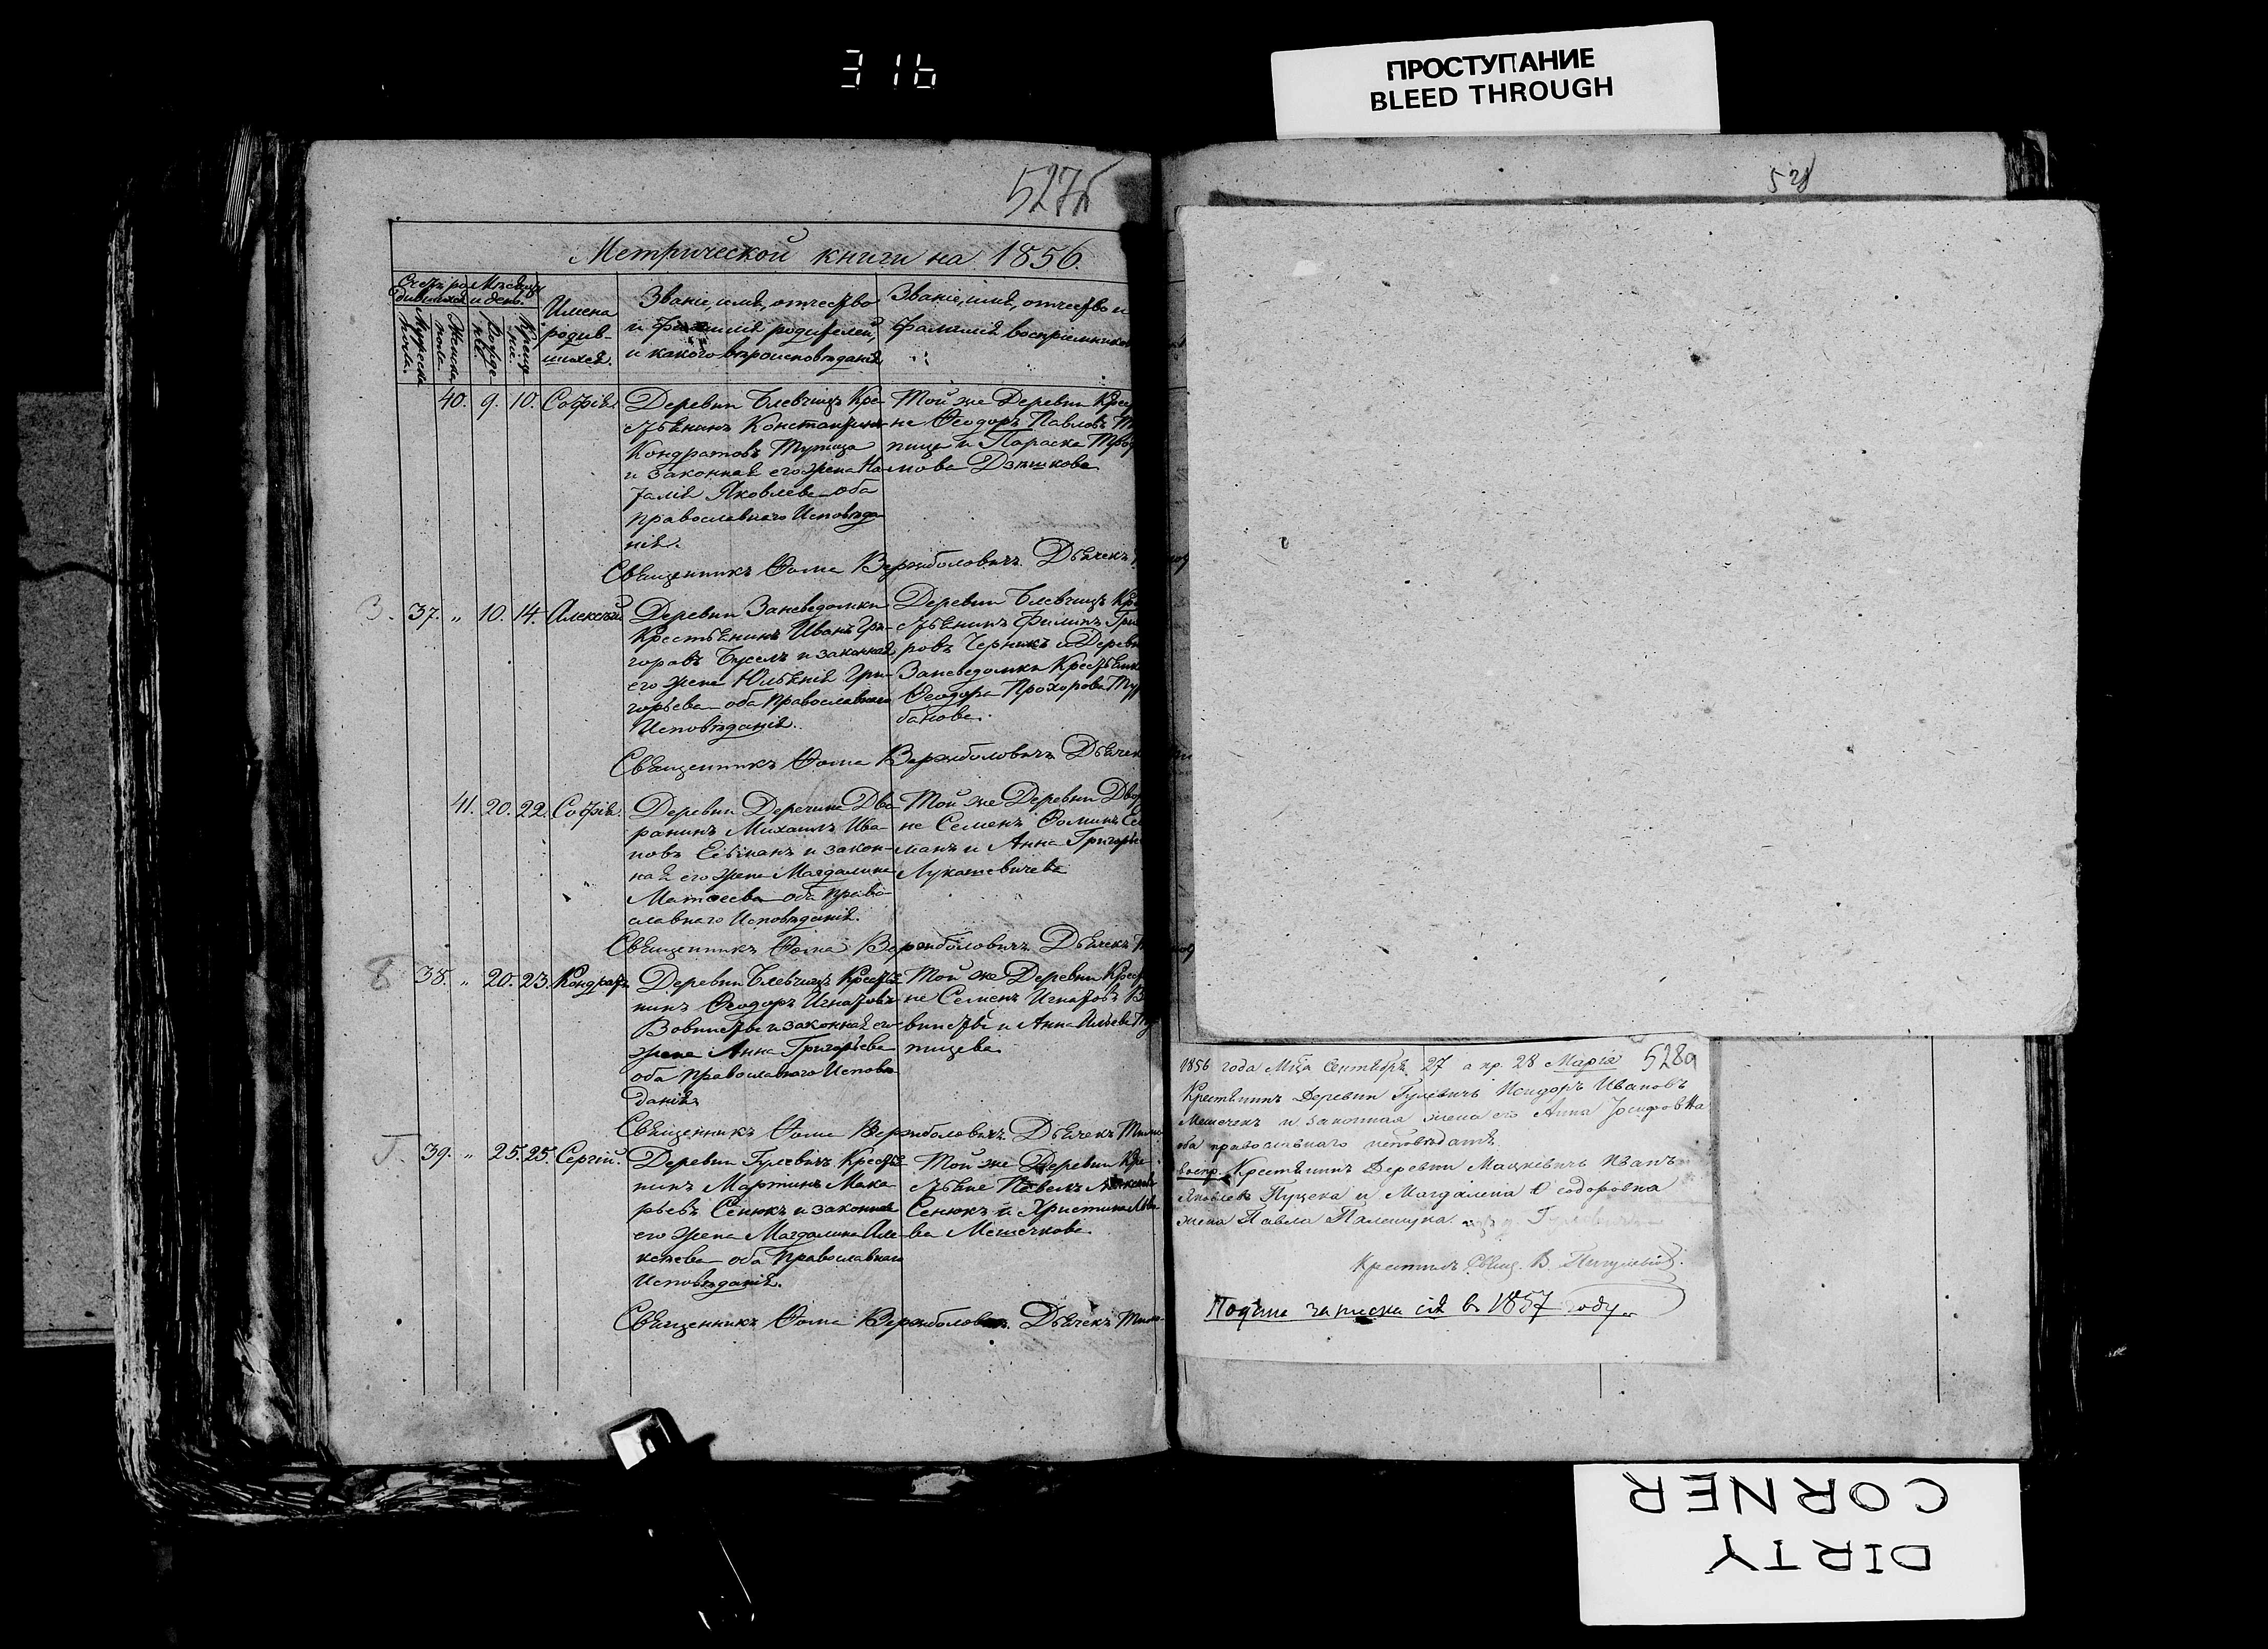 316
ПРОСТУПАНИЕ
BLEED THROUGH
527б
528
Метрической книги на 1856.
Счетъ ро- Мѣсяцъ
дившихся и день.
Мужеска пола.
Женска пола.
Рожденіе.
Крещеніе.
Имена
родив-
шихся.
Званіе, имя, отчество
и фамилія родителей,
и какого вѣроисповѣданія
Званіе, имя, отчество и
фамилія воспріемников
40. 9. 10. Софія.
Деревни Блевчицъ Кре-
стьянинъ Константинъ
Кондратовъ Тупица
и законная его жена На-
талія Яковлева оба
православнаго Исповѣда
нія.
Той же Деревни Крес
не Ѳеодоръ Павловъ
пица и Параска
мова
Священникъ Ѳома Вержболовичъ. Дьячекъ
3. 37. „ 10. 14. Алексѣй
Деревни Заневедомки
Крестьянинъ Иванъ Гри-
горовъ Бусел и законная
его жена Юльянія Гри-
горьева оба Православнаго
Исповѣданія.
Деревни Блевчицъ Кре
стьянинъ Филипъ Гри
ровъ Черникъ и Деревн
Заневедомки Крестьянк
Ѳеодора Прохорова
банова.
Священникъ Ѳома Вержболовичъ Дьячек
41. 20. 22. Софія.
Деревни Деречина Дво
рянинъ Михаилъ Ива-
новъ Ельманъ и закон-
ная его жена Магдалина
Матѳеева оба Право-
славнаго Исповѣданія.
Той же Деревни Двор
не Семенъ Ѳоминъ
манъ и Анна Григорье
Лукашевичева
Священникъ Ѳома Вержболовичъ. Дьячекъ
8 38. „ 20. 23. Кондратъ
Деревни Блевчицъ Крестья
нинъ Ѳеодоръ Игнатовъ
и законная его
жена Анна Григорьева
оба православнаго Исповѣ
данія
Той же Деревни Крест
не Семенъ Игнатовъ В
и Анна Ильева
пицева
Священникъ Ѳома Вержболовичъ. Дьячекъ
5. 39. „ 25. 25. Сергій.
Деревни Гулевичъ Крестья
нинъ Мартинъ Мака
рьевъ Сенюкъ и законная
его жена Магдалина Але
ксѣева оба Православнаго
Исповѣданія.
Той же Деревни Кре
стьяне Павелъ
Сенюкъ и Христина
ва Мешечкова
Священникъ Ѳома Вержболовичъ. Дьячекъ
528а
1856 года Мца Сентября 27 а кр. 28 Марія
Крестянинъ Деревни Гулевичъ Исидоръ Ивановъ
Мешечекъ и законная жена его Анна Іосифовна
оба православнаго исповѣданія
воспр. Крестянинъ Деревни Мацкевичъ Иванъ
Яковлевъ Пуцека и Магдалена Ѳеодоровна
жена Павла Палещука. изъ д. Гулевичъ
Крестилъ Свящ. В.
Подана записка сія въ 1857 году.
DIRTY
CORNER